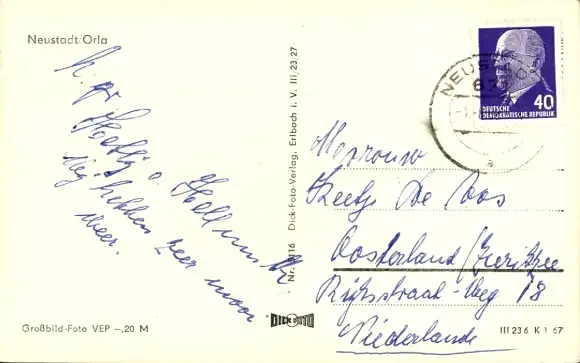 Neustadt/Orla
h. gr.
Hettij
Wij hebben zeer mooi
weer.
Großbild-Foto VEP –,20 M
Dick-Foto-Verlag, Erlbach i. V. III/23/27
DICK FOTO
NEUS
DEUTSCHE
DEMOKRATISCHE REPUBLIK
40
Mevrouw
Keetje De Vos
Oosterland/Zierikzee
Rijksstraat-Weg 78
Niederlande
III 23 6 K 1 67